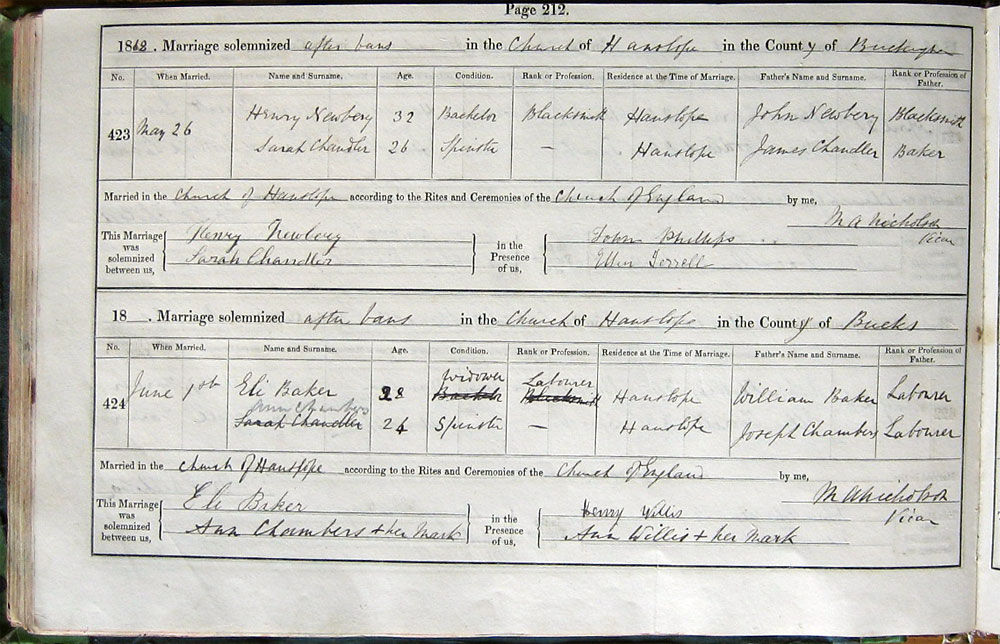 Page 212.
1862. Marriage solemnized after bans in the Church of Hanslope in the County of Buckingham
No. When Married. Name and Surname. Age. Condition. Rank or Profession. Residence at the Time of Marriage. Father's Name and Surname. Rank or Profession of Father.
423 May 26 Henry Newbery 32 Bachelor Blacksmith Hanslope John Newbery Blacksmith
Sarah Chandler 26 Spinster — Hanslope James Chandler Baker
Married in the Church of Hanslope according to the Rites and Ceremonies of the Church of England by me,
M A Nicholson
Vicar
This Marriage was solemnized between us, Henry Newbery in the Presence of us, John Phillips
Sarah Chandler Terrell
18 . Marriage solemnized after bans in the Church of Hanslope in the County of Bucks
No. When Married. Name and Surname. Age. Condition. Rank or Profession. Residence at the Time of Marriage. Father's Name and Surname. Rank or Profession of Father.
424 June 1st Eli Baker 28 Widower Bachelor Labourer Blacksmith Hanslope William Baker Labourer
Ann Chambers
Sarah Chandler 24 Spinster — Hanslope Joseph Chambers Labourer
Married in the Church of Hanslope according to the Rites and Ceremonies of the Church of England by me,
M A Nicholson
Vicar
This Marriage was solemnized between us, Eli Baker in the Presence of us, Henry Willis
Ann Chambers + her Mark Ann Willis + her Mark